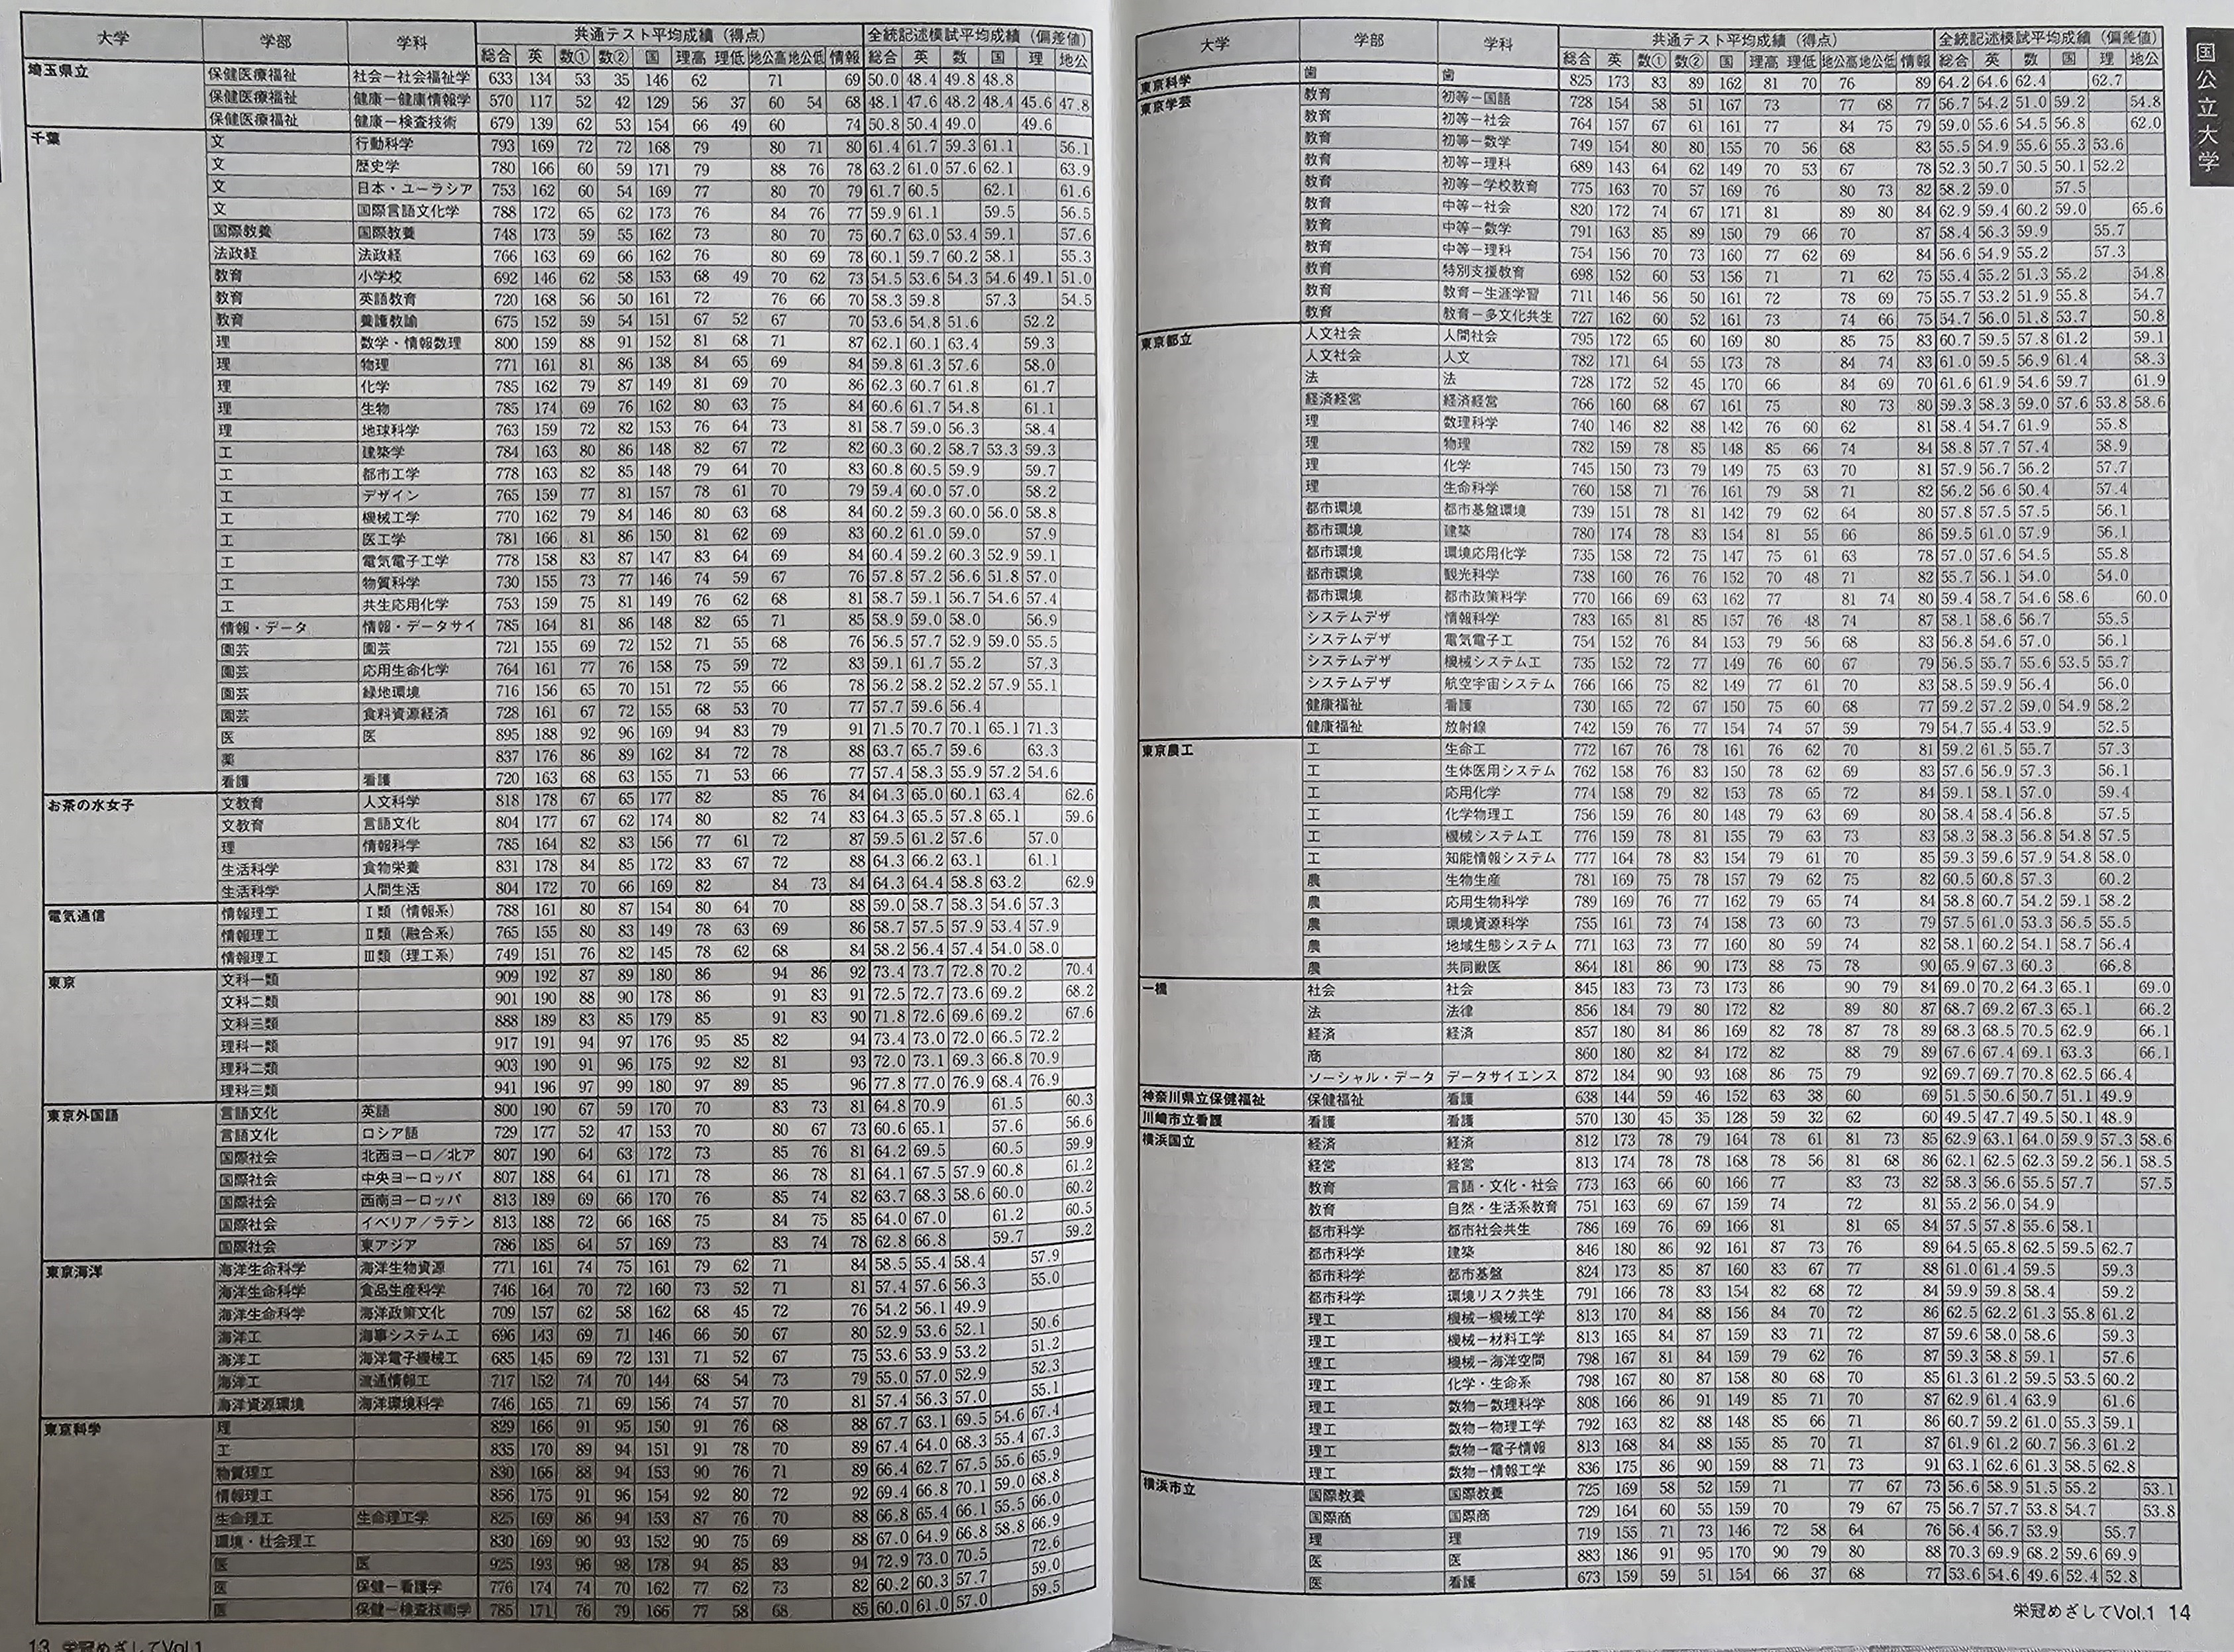 大学 学部 学科 共通テスト平均成績（得点） 全統記述模試平均成績（偏差値）
総合 英 数① 数② 国 理高 理低 地公高 地公低 情報 総合 英 数 国 理 地公
埼玉県立 保健医療福祉 社会－社会福祉学 633 134 53 35 146 62 71 69 50.0 48.4 49.8 48.8
保健医療福祉 健康－健康情報学 570 117 52 42 129 56 37 60 54 68 48.1 47.6 48.2 48.4 45.6 47.8
保健医療福祉 健康－検査技術 679 139 62 53 154 66 49 60 74 50.8 50.4 49.0 49.6
千葉 文 行動科学 793 169 72 72 168 79 80 71 80 61.4 61.7 59.3 61.1 56.1
文 歴史学 780 166 60 59 171 79 88 76 78 63.2 61.0 57.6 62.1 63.9
文 日本・ユーラシア 753 162 60 54 169 77 80 70 79 61.7 60.5 62.1 61.6
文 国際言語文化学 788 172 65 62 173 76 84 76 77 59.9 61.1 59.5 56.5
国際教養 国際教養 748 173 59 55 162 73 80 70 75 60.7 63.0 53.4 59.1 57.6
法政経 法政経 766 163 69 66 162 76 80 69 78 60.1 59.7 60.2 58.1 55.3
教育 小学校 692 146 62 58 153 68 49 70 62 73 54.5 53.6 54.3 54.6 49.1 51.0
教育 英語教育 720 168 56 50 161 72 76 66 70 58.3 59.8 57.3 54.5
教育 養護教諭 675 152 59 54 151 67 52 67 70 53.6 54.8 51.6 52.2
理 数学・情報数理 800 159 88 91 152 81 68 71 87 62.1 60.1 63.4 59.3
理 物理 771 161 81 86 138 84 65 69 84 59.8 61.3 57.6 58.0
理 化学 785 162 79 87 149 81 69 70 86 62.3 60.7 61.8 61.7
理 生物 785 174 69 76 162 80 63 75 84 60.6 61.7 54.8 61.1
理 地球科学 763 159 72 82 153 76 64 73 81 58.7 59.0 56.3 58.4
工 建築学 784 163 80 86 148 82 67 72 82 60.3 60.2 58.7 53.3 59.3
工 都市工学 778 163 82 85 148 79 64 70 83 60.8 60.5 59.9 59.7
工 デザイン 765 159 77 81 157 78 61 70 79 59.4 60.0 57.0 58.2
工 機械工学 770 162 79 84 146 80 63 68 84 60.2 59.3 60.0 56.0 58.8
工 医工学 781 166 81 86 150 81 62 69 83 60.2 61.0 59.0 57.9
工 電気電子工学 778 158 83 87 147 83 64 69 84 60.4 59.2 60.3 52.9 59.1
工 物質科学 730 155 73 77 146 74 59 67 76 57.8 57.2 56.6 51.8 57.0
工 共生応用化学 753 159 75 81 149 76 62 68 81 58.7 59.1 56.7 54.6 57.4
情報・データ 情報・データサイ 785 164 81 86 148 82 65 71 85 58.9 59.0 58.0 56.9
園芸 園芸 721 155 69 72 152 71 55 68 76 56.5 57.7 52.9 59.0 55.5
園芸 応用生命化学 764 161 77 76 158 75 59 72 83 59.1 61.7 55.2 57.3
園芸 緑地環境 716 156 65 70 151 72 55 66 78 56.2 58.2 52.2 57.9 55.1
園芸 食料資源経済 728 161 67 72 155 68 53 70 77 57.7 59.6 56.4
医 医 895 188 92 96 169 94 83 79 91 71.5 70.7 70.1 65.1 71.3
薬 837 176 86 89 162 84 72 78 88 63.7 65.7 59.6 63.3
看護 看護 720 163 68 63 155 71 53 66 77 57.4 58.3 55.9 57.2 54.6
お茶の水女子 文教育 人文科学 818 178 67 65 177 82 85 76 84 64.3 65.0 60.1 63.4 62.6
文教育 言語文化 804 177 67 62 174 80 82 74 83 64.3 65.5 57.8 65.1 59.6
理 情報科学 785 164 82 83 156 77 61 72 87 59.5 61.2 57.6 57.0
生活科学 食物栄養 831 178 84 85 172 83 67 72 88 64.3 66.2 63.1 61.1
生活科学 人間生活 804 172 70 66 169 82 84 73 84 64.3 64.4 58.8 63.2 62.9
電気通信 情報理工 Ⅰ類（情報系） 788 161 80 87 154 80 64 70 88 59.0 58.7 58.3 54.6 57.3
情報理工 Ⅱ類（融合系） 765 155 80 83 149 78 63 69 86 58.7 57.5 57.9 53.4 57.9
情報理工 Ⅲ類（理工系） 749 151 76 82 145 78 62 68 84 58.2 56.4 57.4 54.0 58.0
東京 文科一類 909 192 87 89 180 86 94 86 92 73.4 73.7 72.8 70.2 70.4
文科二類 901 190 88 90 178 86 91 83 91 72.5 72.7 73.6 69.2 68.2
文科三類 888 189 83 85 179 85 91 83 90 71.8 72.6 69.6 69.2 67.6
理科一類 917 191 94 97 176 95 85 82 94 73.4 73.0 72.0 66.5 72.2
理科二類 903 190 91 96 175 92 82 81 93 72.0 73.1 69.3 66.8 70.9
理科三類 941 196 97 99 180 97 89 85 96 77.8 77.0 76.9 68.4 76.9
東京外国語 言語文化 英語 800 190 67 59 170 70 83 73 81 64.8 70.9 61.5 60.3
言語文化 ロシア語 729 177 52 47 153 70 80 67 73 60.6 65.1 57.6 56.6
国際社会 北西ヨーロ／北ア 807 190 64 63 172 73 85 76 81 64.2 69.5 60.5 59.9
国際社会 中央ヨーロッパ 807 188 64 61 171 78 86 78 81 64.1 67.5 57.9 60.8 61.2
国際社会 西南ヨーロッパ 813 189 69 66 170 76 85 74 82 63.7 68.3 58.6 60.0 60.2
国際社会 イベリア／ラテン 813 188 72 66 168 75 84 75 85 64.0 67.0 61.2 60.5
国際社会 東アジア 786 185 64 57 169 73 83 74 78 62.8 66.8 59.7 59.2
東京海洋 海洋生命科学 海洋生物資源 771 161 74 75 161 79 62 71 84 58.5 55.4 58.4 57.9
海洋生命科学 食品生産科学 746 164 70 72 160 73 52 71 81 57.4 57.6 56.3 55.0
海洋生命科学 海洋政策文化 709 157 62 58 162 68 45 72 76 54.2 56.1 49.9
海洋工 海事システム工 696 143 69 71 146 66 50 67 80 52.9 53.6 52.1 50.6
海洋工 海洋電子機械工 685 145 69 72 131 71 52 67 75 53.6 53.9 53.2 51.2
海洋工 流通情報工 717 152 74 70 144 68 54 73 79 55.0 57.0 52.9 52.3
海洋資源環境 海洋環境科学 746 165 71 69 156 74 57 70 81 57.4 56.3 57.0 55.1
東京科学 理 829 166 91 95 150 91 76 68 88 67.7 63.1 69.5 54.6 67.4
工 835 170 89 94 151 91 78 70 89 67.4 64.0 68.3 55.4 67.3
物質理工 830 166 88 94 153 90 76 71 89 66.4 62.7 67.5 55.6 65.9
情報理工 856 175 91 96 154 92 80 72 92 69.4 66.8 70.1 59.0 68.8
生命理工 生命理工学 825 169 86 94 153 87 76 70 88 66.8 65.4 66.1 55.5 66.0
環境・社会理工 830 169 90 93 152 90 75 69 88 67.0 64.9 66.8 58.8 66.9
医 医 925 193 96 98 178 94 85 83 94 72.9 73.0 70.5 72.6
医 保健－看護学 776 174 74 70 162 77 62 73 82 60.2 60.3 57.7 59.0
医 保健－検査技術学 785 171 76 79 166 77 58 68 85 60.0 61.0 57.0 59.5
13 栄冠めざしてVol.1
国公立大学
大学 学部 学科 共通テスト平均成績（得点） 全統記述模試平均成績（偏差値）
総合 英 数① 数② 国 理高 理低 地公高 地公低 情報 総合 英 数 国 理 地公
東京科学 歯 歯 825 173 83 89 162 81 70 76 89 64.2 64.6 62.4 62.7
東京学芸 教育 初等－国語 728 154 58 51 167 73 77 68 77 56.7 54.2 51.0 59.2 54.8
教育 初等－社会 764 157 67 61 161 77 84 75 79 59.0 55.6 54.5 56.8 62.0
教育 初等－数学 749 154 80 80 155 70 56 68 83 55.5 54.9 55.6 55.3 53.6
教育 初等－理科 689 143 64 62 149 70 53 67 78 52.3 50.7 50.5 50.1 52.2
教育 初等－学校教育 775 163 70 57 169 76 80 73 82 58.2 59.0 57.5
教育 中等－社会 820 172 74 67 171 81 89 80 84 62.9 59.4 60.2 59.0 65.6
教育 中等－数学 791 163 85 89 150 79 66 70 87 58.4 56.3 59.9 55.7
教育 中等－理科 754 156 70 73 160 77 62 69 84 56.6 54.9 55.2 57.3
教育 特別支援教育 698 152 60 53 156 71 71 62 75 55.4 55.2 51.3 55.2 54.8
教育 教育－生涯学習 711 146 56 50 161 72 78 69 75 55.7 53.2 51.9 55.8 54.7
教育 教育－多文化共生 727 162 60 52 161 73 74 66 75 54.7 56.0 51.8 53.7 50.8
東京都立 人文社会 人間社会 795 172 65 60 169 80 85 75 83 60.7 59.5 57.8 61.2 59.1
人文社会 人文 782 171 64 55 173 78 84 74 83 61.0 59.5 56.9 61.4 58.3
法 法 728 172 52 45 170 66 84 69 70 61.6 61.9 54.6 59.7 61.9
経済経営 経済経営 766 160 68 67 161 75 80 73 80 59.3 58.3 59.0 57.6 53.8 58.6
理 数理科学 740 146 82 88 142 76 60 62 81 58.4 54.7 61.9 55.8
理 物理 782 159 78 85 148 85 66 74 84 58.8 57.7 57.4 58.9
理 化学 745 150 73 79 149 75 63 70 81 57.9 56.7 56.2 57.7
理 生命科学 760 158 71 76 161 79 58 71 82 56.2 56.6 50.4 57.4
都市環境 都市基盤環境 739 151 78 81 142 79 62 64 80 57.8 57.5 57.5 56.1
都市環境 建築 780 174 78 83 154 81 55 66 86 59.5 61.0 57.9 56.1
都市環境 環境応用化学 735 158 72 75 147 75 61 63 78 57.0 57.6 54.5 55.8
都市環境 観光科学 738 160 76 76 152 70 48 71 82 55.7 56.1 54.0 54.0
都市環境 都市政策科学 770 166 69 63 162 77 81 74 80 59.4 58.7 54.6 58.6 60.0
システムデザ 情報科学 783 165 81 85 157 76 48 74 87 58.1 58.6 56.7 55.5
システムデザ 電気電子工 754 152 76 84 153 79 56 68 83 56.8 54.6 57.0 56.1
システムデザ 機械システム工 735 152 72 77 149 76 60 67 79 56.5 55.7 55.6 53.5 55.7
システムデザ 航空宇宙システム 766 166 75 82 149 77 61 70 83 58.5 59.9 56.4 56.0
健康福祉 看護 730 165 72 67 150 75 60 68 77 59.2 57.2 59.0 54.9 58.2
健康福祉 放射線 742 159 76 77 154 74 57 59 79 54.7 55.4 53.9 52.5
東京農工 工 生命工 772 167 76 78 161 76 62 70 81 59.2 61.5 55.7 57.3
工 生体医用システム 762 158 76 83 150 78 62 69 83 57.6 56.9 57.3 56.1
工 応用化学 774 158 79 82 153 78 65 72 84 59.1 58.1 57.0 59.4
工 化学物理工 756 159 76 80 148 79 63 69 80 58.4 58.4 56.8 57.5
工 機械システム工 776 159 78 81 155 79 63 73 83 58.3 58.3 56.8 54.8 57.5
工 知能情報システム 777 164 78 83 154 79 61 70 85 59.3 59.6 57.9 54.8 58.0
農 生物生産 781 169 75 78 157 79 62 75 82 60.5 60.8 57.3 60.2
農 応用生物科学 789 169 76 77 162 79 65 74 84 58.8 60.7 54.2 59.1 58.2
農 環境資源科学 755 161 73 74 158 73 60 73 79 57.5 61.0 53.3 56.5 55.5
農 地域生態システム 771 163 73 77 160 80 59 74 82 58.1 60.2 54.1 58.7 56.4
農 共同獣医 864 181 86 90 173 88 75 78 90 65.9 67.3 60.3 66.8
一橋 社会 社会 845 183 73 73 173 86 90 79 84 69.0 70.2 64.3 65.1 69.0
法 法律 856 184 79 80 172 82 89 80 87 68.7 69.2 67.3 65.1 66.2
経済 経済 857 180 84 86 169 82 78 87 78 89 68.3 68.5 70.5 62.9 66.1
商 860 180 82 84 172 82 88 79 89 67.6 67.4 69.1 63.3 66.1
ソーシャル・データ データサイエンス 872 184 90 93 168 86 75 79 92 69.7 69.7 70.8 62.5 66.4
神奈川県立保健福祉 保健福祉 看護 638 144 59 46 152 63 38 60 69 51.5 50.6 50.7 51.1 49.9
川崎市立看護 看護 看護 570 130 45 35 128 59 32 62 60 49.5 47.7 49.5 50.1 48.9
横浜国立 経済 経済 812 173 78 79 164 78 61 81 73 85 62.9 63.1 64.0 59.9 57.3 58.6
経営 経営 813 174 78 78 168 78 56 81 68 86 62.1 62.5 62.3 59.2 56.1 58.5
教育 言語・文化・社会 773 163 66 60 166 77 83 73 82 58.3 56.6 55.5 57.7 57.5
教育 自然・生活系教育 751 163 69 67 159 74 72 81 55.2 56.0 54.9
都市科学 都市社会共生 786 169 76 69 166 81 81 65 84 57.5 57.8 55.6 58.1
都市科学 建築 846 180 86 92 161 87 73 76 89 64.5 65.8 62.5 59.5 62.7
都市科学 都市基盤 824 173 85 87 160 83 67 77 88 61.0 61.4 59.5 59.3
都市科学 環境リスク共生 791 166 78 83 154 82 68 72 84 59.9 59.8 58.4 59.2
理工 機械－機械工学 813 170 84 88 156 84 70 72 86 62.5 62.2 61.3 55.8 61.2
理工 機械－材料工学 813 165 84 87 159 83 71 72 87 59.6 58.0 58.6 59.3
理工 機械－海洋空間 798 167 81 84 159 79 62 76 87 59.3 58.8 59.1 57.6
理工 化学・生命系 798 167 80 87 158 80 68 70 85 61.3 61.2 59.5 53.5 60.2
理工 数物－数理科学 808 166 86 91 149 85 71 70 87 62.9 61.4 63.9 61.6
理工 数物－物理工学 792 163 82 88 148 85 66 71 86 60.7 59.2 61.0 55.3 59.1
理工 数物－電子情報 813 168 84 88 155 85 70 71 87 61.9 61.2 60.7 56.3 61.2
理工 数物－情報工学 836 175 86 90 159 88 71 73 91 63.1 62.6 61.3 58.5 62.8
横浜市立 国際教養 国際教養 725 169 58 52 159 71 77 67 73 56.6 58.9 51.5 55.2 53.1
国際商 国際商 729 164 60 55 159 70 79 67 75 56.7 57.7 53.8 54.7 53.8
理 理 719 155 71 73 146 72 58 64 76 56.4 56.7 53.9 55.7
医 医 883 186 91 95 170 90 79 80 88 70.3 69.9 68.2 59.6 69.9
医 看護 673 159 59 51 154 66 37 68 77 53.6 54.6 49.6 52.4 52.8
栄冠めざしてVol.1 14